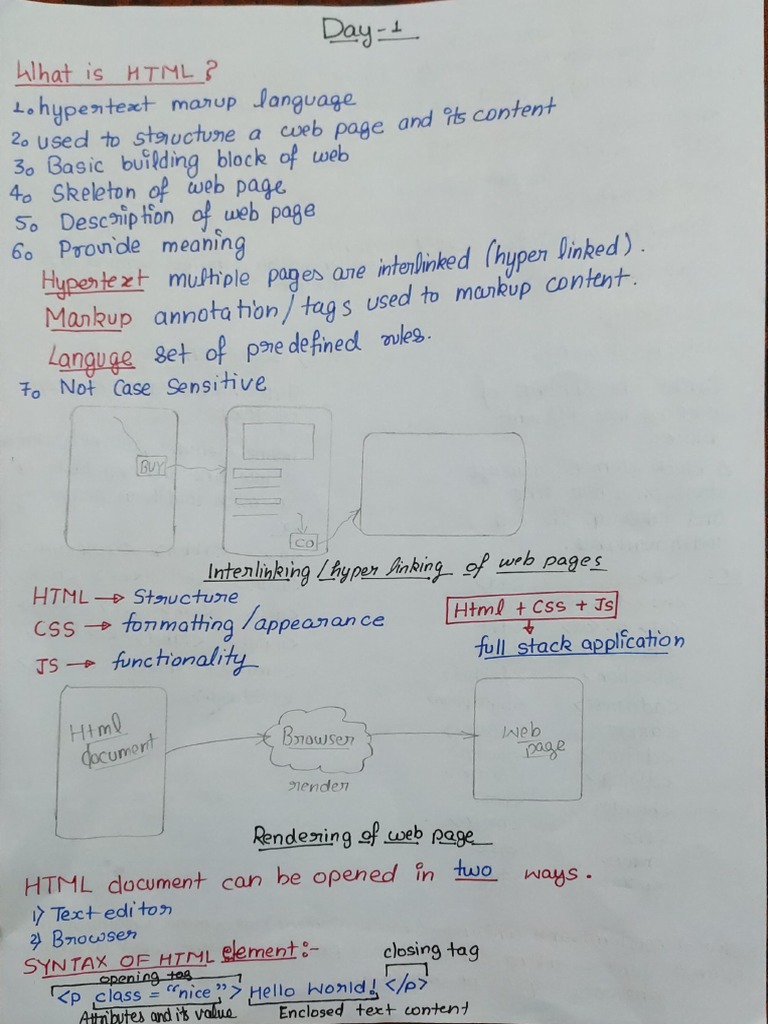 Day-1
What is HTML?
1. hypertext marup language
2. used to structure a web page and its content
3. Basic building block of web
4. Skeleton of web page
5. Description of web page
6. Provide meaning
Hypertext multiple pages are interlinked (hyper linked).
Markup annotation/tags used to markup content.
Languge set of predefined rules.
7. Not Case Sensitive
BUY
CO
Interlinking/hyper linking of web pages
HTML → Structure
Html + CSS + Js
CSS → formatting/appearance
full stack application
JS → functionality
Html document
Browser
web page
render
Rendering of web page
HTML document can be opened in two ways.
1) Text editor
2) Browser
closing tag
SYNTAX OF HTML element:-
opening tag
<p class = "nice"> Hello World! </p>
Attributes and its value Enclosed text content